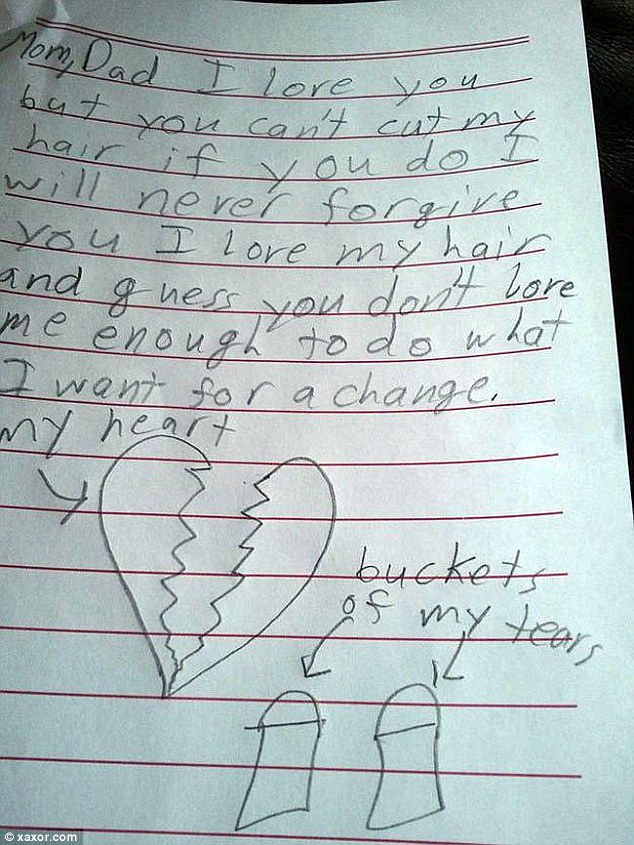 Mom, Dad I love you
but you can't cut my
hair if you do I
will never forgive
you I love my hair
and guess you don't love
me enough to do what
I want for a change.
my heart
buckets
of my tears
© xaxor.com